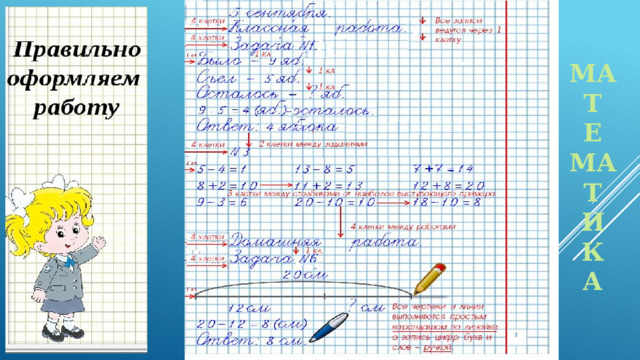 Правильно
оформляем
работу
5 сентября.
4 клетки Классная работа.
Все записи
ведутся через 1
клетку
4 клетки Задача №1.
1 кл
Было – 9 яб.
1 кл
Съел – 5 яб.
1 кл
Осталось – ? яб.
9 - 5 = 4 (яб.)-осталось.
Ответ: 4 яблока
4 клетки 2 клетки между заданиями
№3
5–4=1 13–8=5 7+7=14
8+2=10 11+2=13 12+8=20
3 клетки между столбиками от наиболее выступающего примера
9–3=6 20–10=10 18–10=8
4 клетки между работами
4 клетки Домашняя работа.
1 кл
4 клетки Задача №6
20 см
12 см ? см
20–12–8(см)
Ответ: 8 см.
Все чертежи и линии
выполняются простым
карандашом по линейке,
а запись цифр, букв и
слов – ручкой.
МА
Т
Е
МА
Т
И
К
А